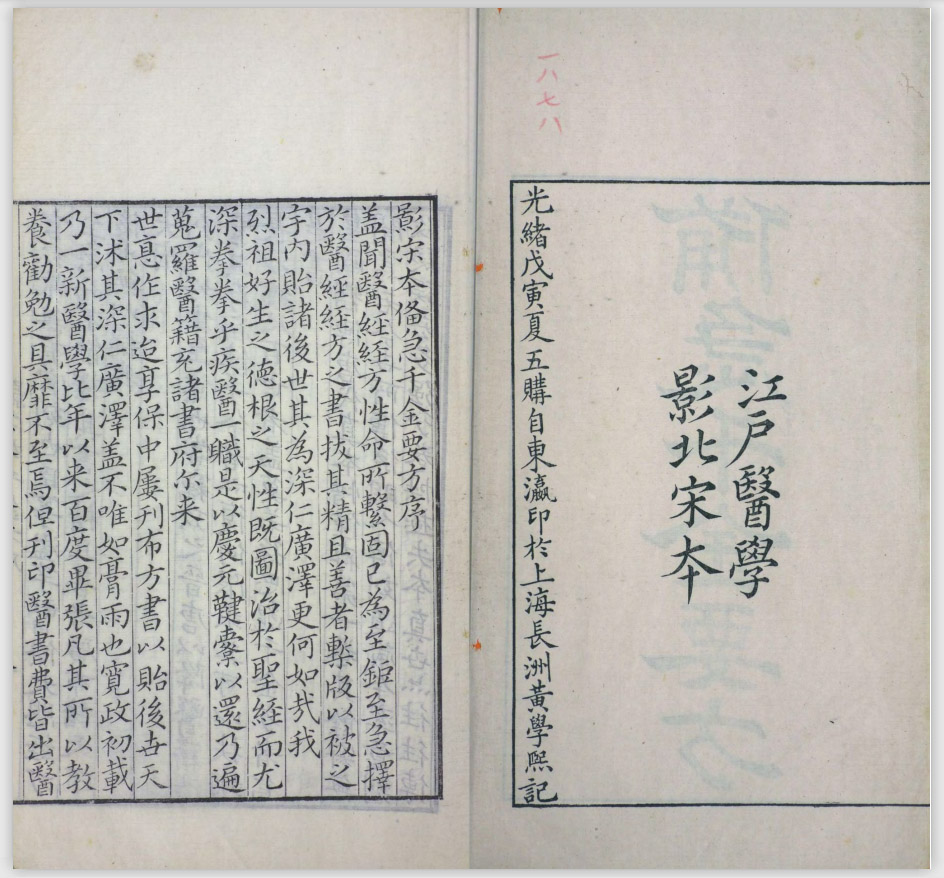 一八七八
江戶醫學
影北宋本
光緒戊寅夏五購自東瀛印於上海長洲黃學熙記
影宋本備急千金要方序
盖聞醫經經方性命所繫固已為至鉅至急擇
於醫經經方之書拔其精且善者槧版以被之
宇内貽諸後世其為深仁廣澤更何如㢤我
烈祖好生之德根之天性既圖治於聖經而尤
深拳拳乎疾醫一職是以慶元鞬櫜以還乃遍
蒐羅醫籍充諸書府尔来
世息作求迨享保中屢刋布方書以貽後世天
下沭其深仁廣澤盖不唯如膏雨也寛政初載
乃一新醫學比年以来百度畢張凡其所以教
養勸勉之具靡不至焉但刋印醫書費皆出醫